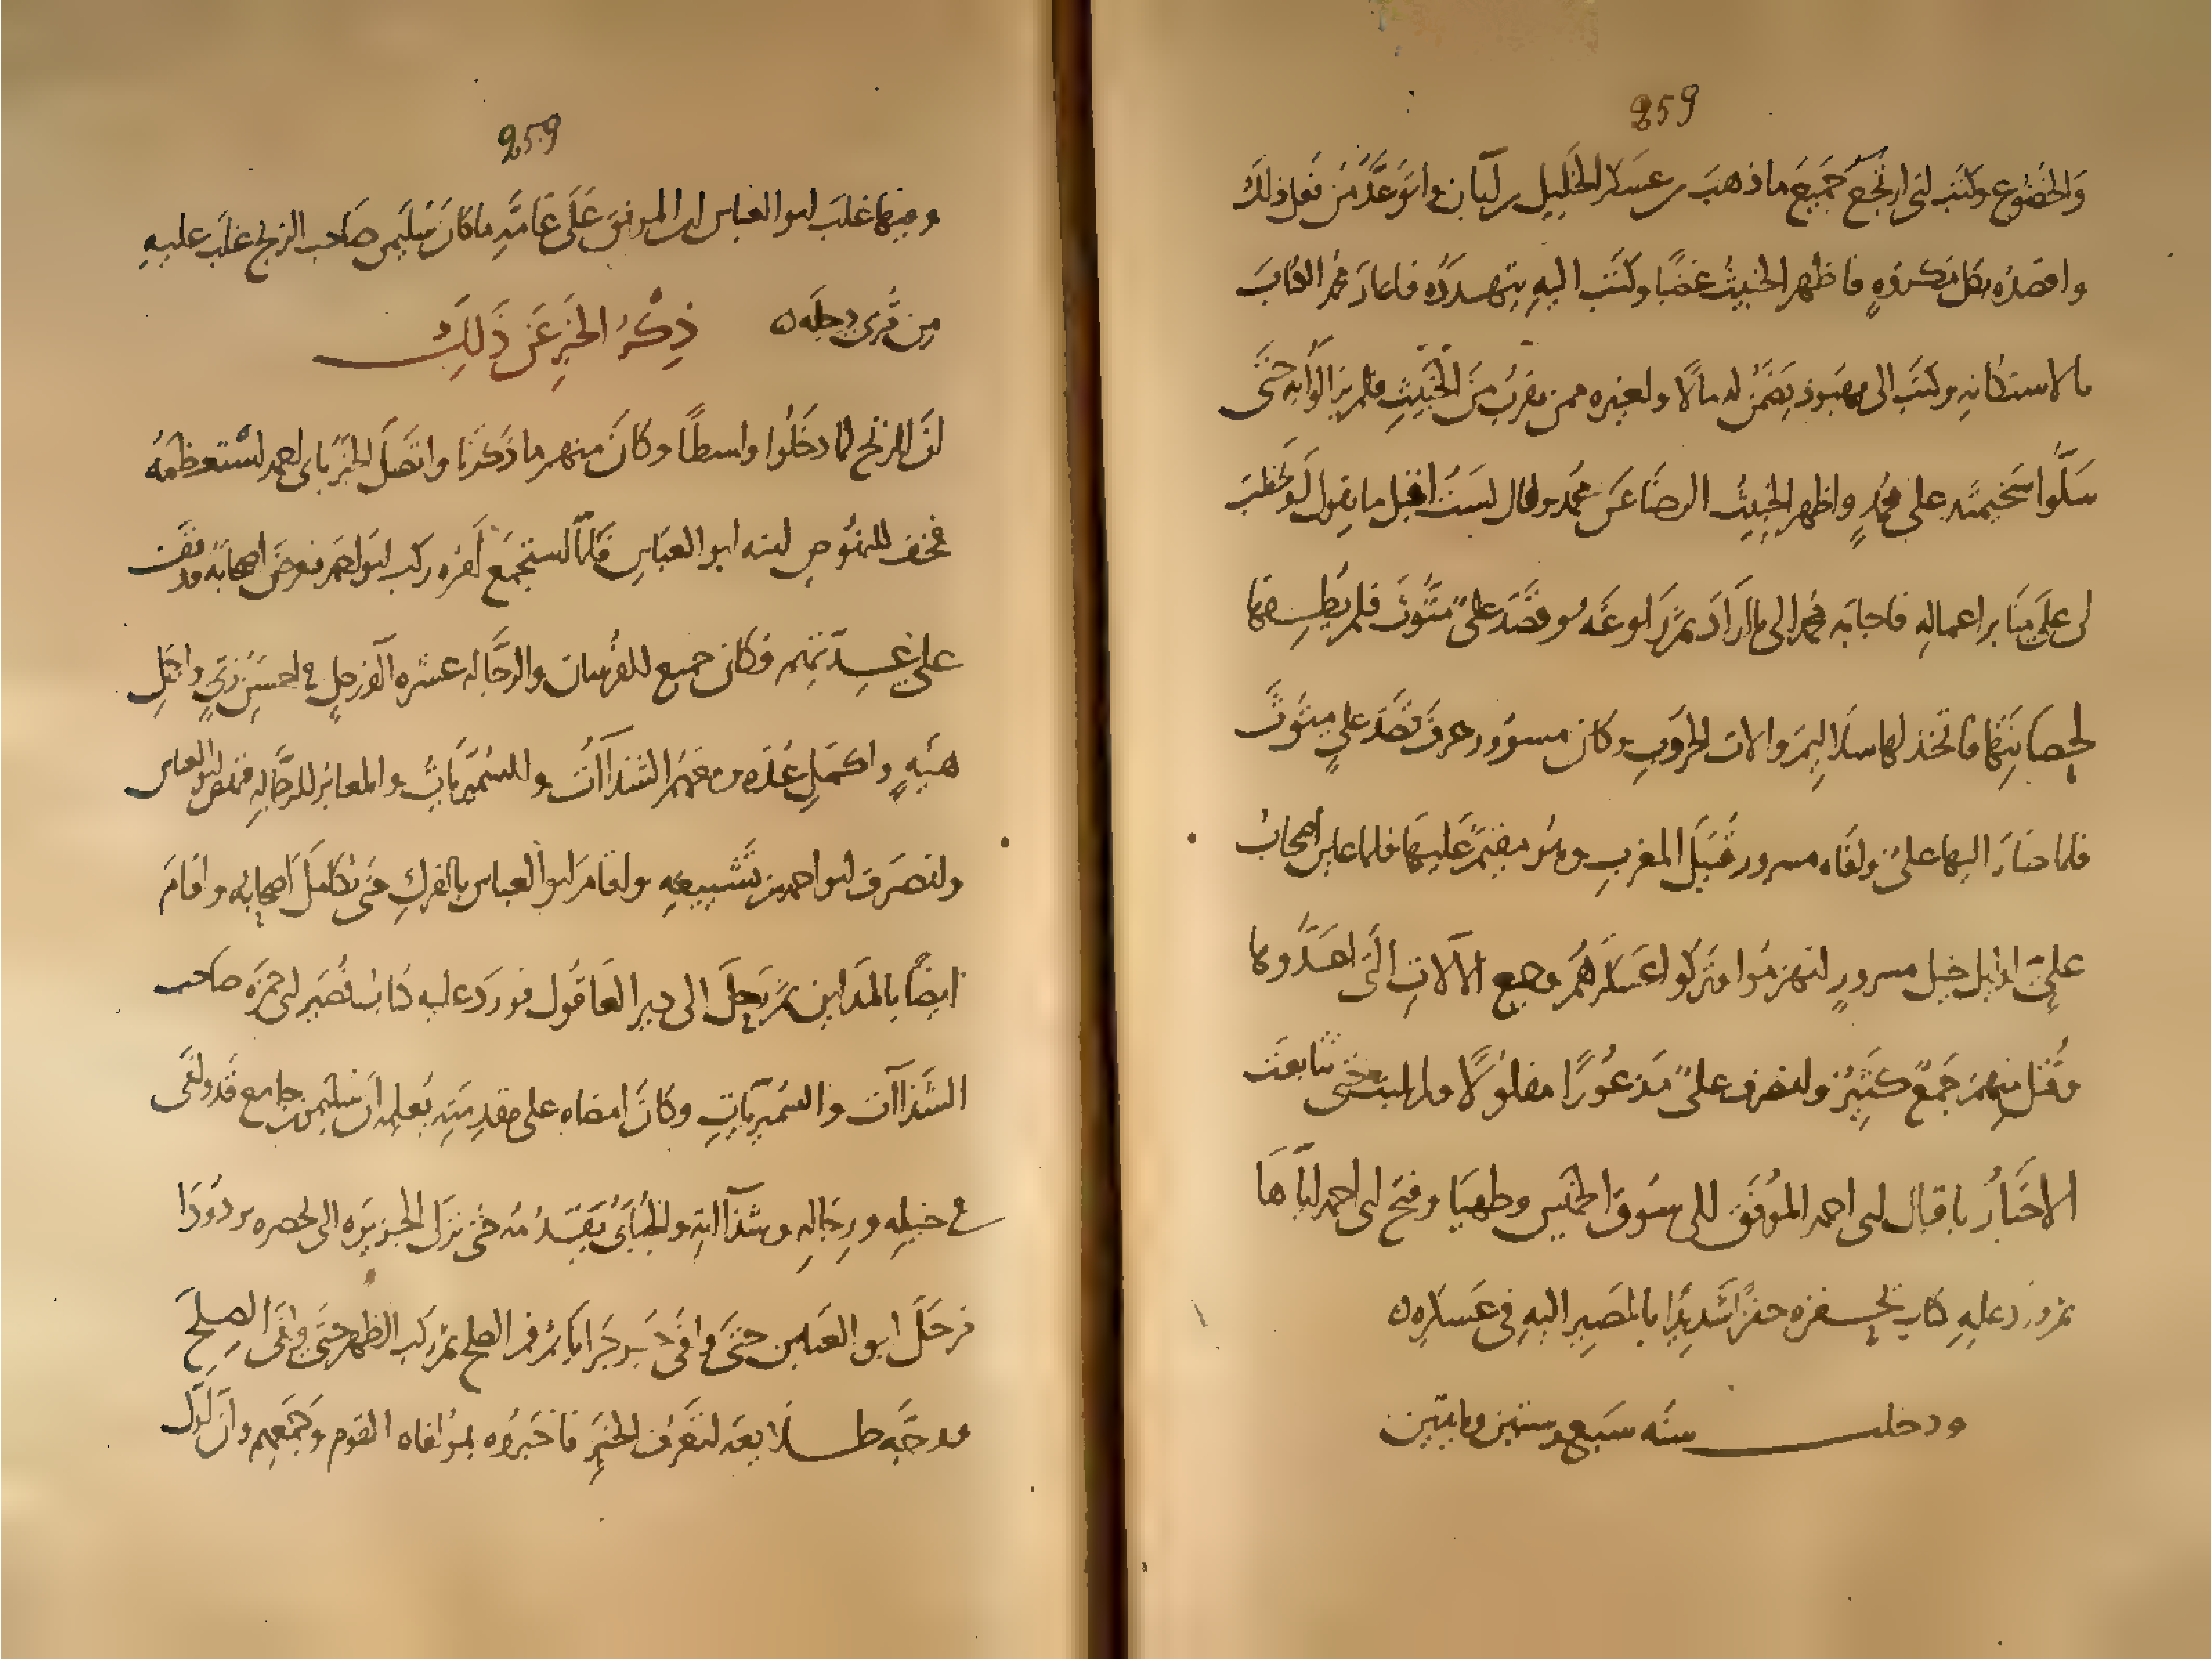 259
والخضوع وكتب اني ارتجع جميع ما ذهب من عسكر الخليل بن ابان واتوعد من فعل ذلك
واقصده بكل مكروه فاظهر الخبيث غضبا وكتب اليه يتهدده فاعاد محمد الكتاب
بالاستكانه وكتب الى بهبوذ يضمن له مالا ولغيره ممن يقرب من الخبيث فلم يزالوا به حتى
سلوا سخيمته على محمد واظهر الخبيث الرضا عن محمد وقال لست اقبل ما يقول او يخطب
لى على منابر اعماله فاجابه محمد الى ما اراد ثم
على متوث فلم يطقها
لحصانتها فاتخذ لها سلاليم والات الحروب وكان مسرور عرف قصد علي متوث
فلما صار اليها علىّ وافاه مسرور قبيل المغرب وهو مقيم عليها فلما عاين اصحاب
علىّ اوايل خيل مسرور انهزموا وتركوا عسكرهم وجميع الالات التى اعدوها
وقتل منهم جمع كثير وانصرف علىّ مذعورا مفلولا ولم يلبث حتى تتابعت
الاخبار باقبال ابى احمد الموفق الى سوق الخميس وطهيثا وفتح ابى احمد اياها
ثم ورد عليه كتاب يحفزه حفزا شديدا بالمصير اليه فى عسكره
ودخلت سنه سبع وستين ومايتين
259
وفيها غلب ابو العباس ابن الموفق على عامّه ما كان سليمن صاحب الزنج غلب عليه
من قرى دجله
ذكر الخبر عن ذلك
ان الزنج لما دخلوا واسطا وكان منهم ما ذكرنا واتصل الخبر بابى احمد استعظمه
فخف للنهوض ابنه ابو العباس فلما استجمع امره ركب ابو احمد فعرض اصحابه ووقف
على عدتهم فكان جميع الفرسان والرجاله عشره الف رجل فى احسن زى واجمل
هيئه واكمل عده ومعهم الشذاآت والسميريات والمعابر للرجاله فنهض ابو العباس
وانصرف ابو احمد من تشييعه واقام ابو العباس بالفرك حتى تكامل اصحابه واقام
ايضا بالمداين ثم رحل الى دير العاقول فورد عليه كتاب نصير ابى حمزه صاحب
الشذاآت والسميريات وكان امضاه على مقدمته يعلمه ان سليمن بن جامع قد وافى
فى خيله ورجاله وشذاآته والجبائى يقدمه حتى نزل الجزيره التى بحضره بردودا
فرحل ابو العباس حتى وافى جرجرايا ثم فم الصلح ثم ركب الظهر حتى وافى الصلح
ووجه طلايعه لتعرف الخبر فاخبروه بموافاه القوم وجمعهم وان اولهم